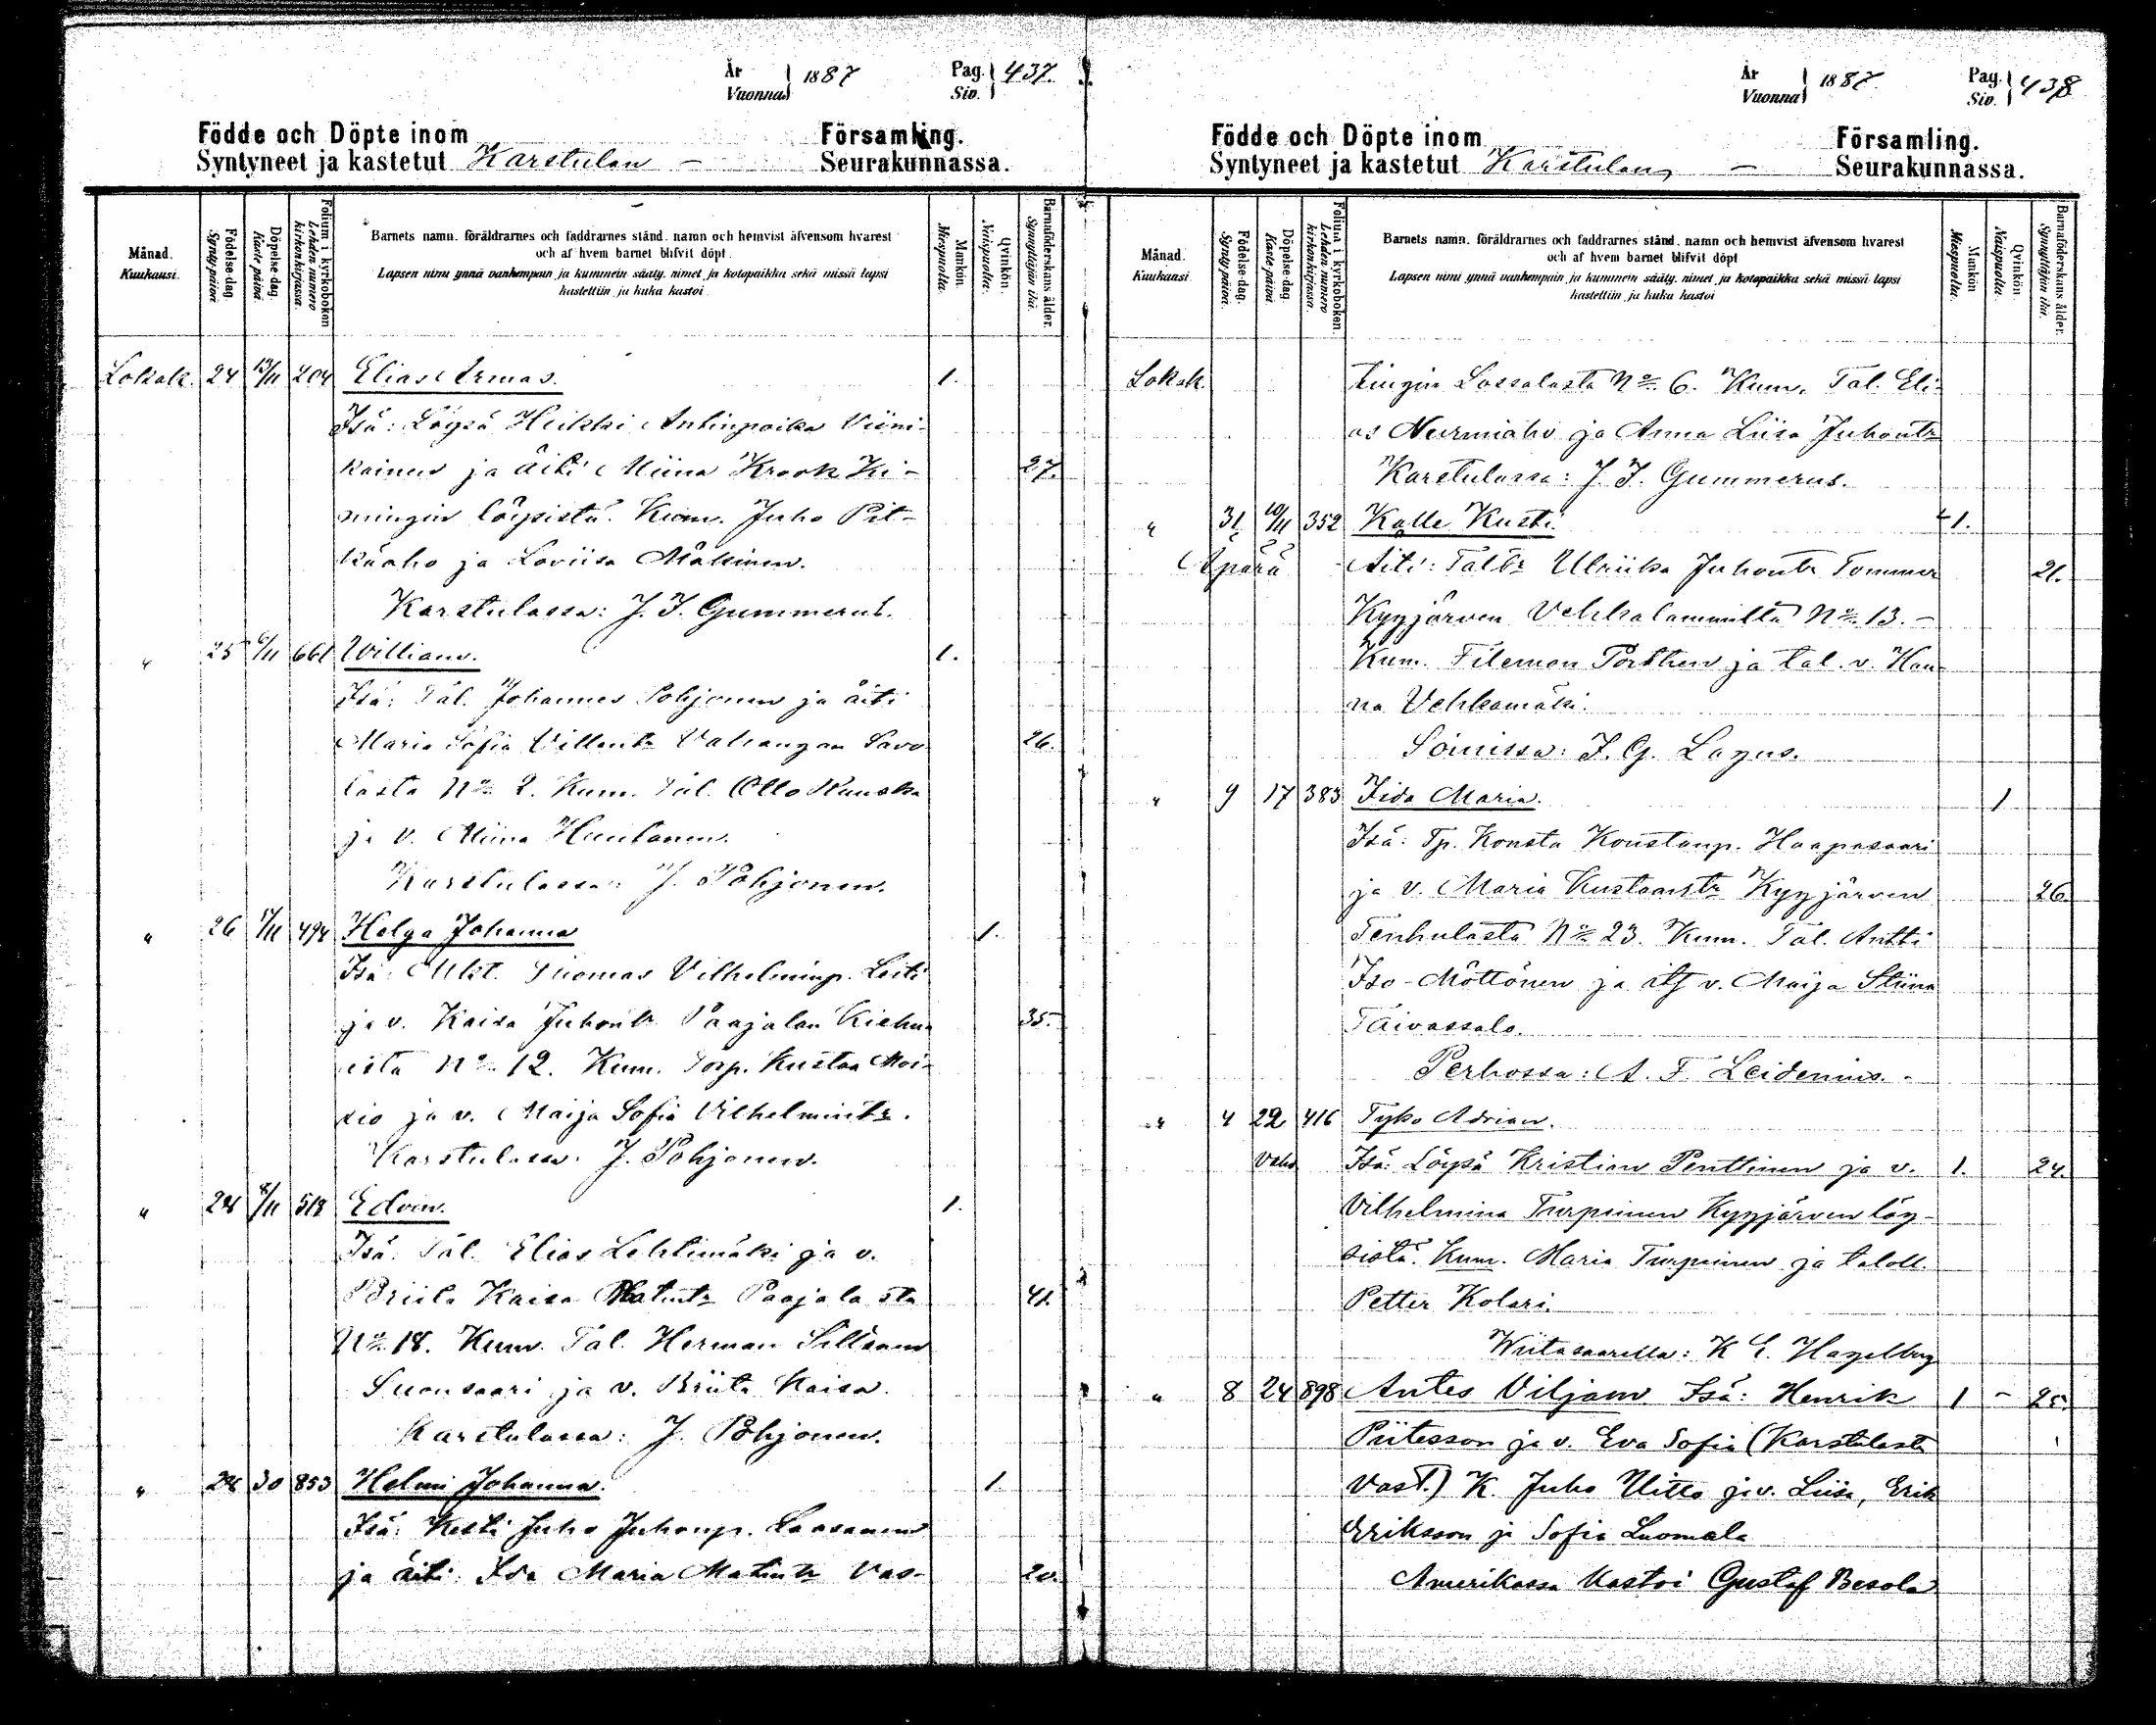 År
Vuonna } 1887
Pag.
Siv. } 437.
Födde och Döpte inom
Syntyneet ja kastetut Karstulan –
Församling.
Seurakunnassa.
Månad.
Kuukausi.
Födelse-dag.
Synty päivä
Döpelse-dag.
Kaste päivä.
Folium i kyrkoboken
Lehden numero
kirkonkirjassa.
Barnets namn. föräldrarnes och faddrarnes stånd. namn och hemvist äfvensom hvarest
och af hvem barnet blifvit döpt.
Lapsen nimi ynnä vanhempain ja kummein sääty. nimet ja kotopaikka sekä missä lapsi
kastettiin ja kuka kastoi.
Mankön.
Miespuolta.
Qvinkön.
Naispuolta.
Barnaföderskans ålder.
Synnyttäjän ikä.
Lokak. 24 13/11 204 Elias Armas. 1.
Isä: Löysä Heikki Antinpoika Viini-
kainen ja äiti Miina Krook Ki- 27.
mingin löysistä. Kum. Juho Pit-
käaho ja Loviisa Mäkinen.
Karstulassa: J. I. Gummerus.
" 25 6/11 661 William. 1.
Isä: Tal. Johannes Pohjonen ja äiti
Maria Sofia Villentr Vahangan Savo- 26.
lasta No 2. Kum. Tal. Otto Kauska
ja v. Miina Huutonen.
Karstulassa: J. Pohjonen.
" 26 17/11 494 Helga Johanna 1.
Isä: Mkt. Tuomas Vilhelminp. Leiti
ja v. Kaisa Juhontr Paajalan Kiehu- 35.
ista No 12. Kum. Torp. Kustaa Moi-
sio ja v. Maija Sofia Vilhelmintr.
Karstulassa. J. Pohjonen.
" 28 8/11 518 Edvin. 1.
Isä: Tal. Elias Lehtimäki ja v.
Briita Kaisa Matintr Paajalasta 41.
No 18. Kum. Tal. Herman Sillanen
Suonsaari ja v. Briita Kaisa.
Karstulassa: J. Pohjonen.
" 28 30 853 Helmi Johanna. 1.
Isä: Kesti Juho Juhonp. Laasanen
ja äiti: Ida Maria Matintr Vas- 20.
År
Vuonna } 1887.
Pag.
Siv. } 438
Födde och Döpte inom
Syntyneet ja kastetut Karstulan –
Församling.
Seurakunnassa.
Månad.
Kuukausi
Födelse-dag.
Synty päivä.
Döpelse-dag.
Kaste päivä
Folium i kyrkoboken.
Lehden numero
kirkonkirjassa.
Barnets namn. föräldrarnes och faddrarnes stånd. namn och hemvist äfvensom hvarest
och af hvem barnet blifvit döpt
Lapsen nimi ynnä vanhempain ja kummein sääty. nimet ja kotopaikka sekä missä lapsi
kastettiin ja kuka kastoi
Mankön
Miespuolta.
Qvinkön.
Naispuolta.
Barnaföderskans ålder.
Synnyttäjän ikä.
Lokak. tingin Lossalasta No 6. Kum. Tal. Eli-
as Nurmiaho ja Anna Liisa Juhontr
Karstulassa: J. I. Gummerus.
" 31 10/11 352 Kalle Kusti. 1.
Äpärä Äiti: Taltr Ulriika Juhontr Tommer 21.
Kyyjärven Vehkalammilta No 13. –
Kum. Filemon Porthen ja tal. v. Han-
na Vehkamäki.
Soinissa: I. G. Lagus.
" 9 17 383 Iida Maria. 1
Isä: Tp. Konsta Konstanp. Haapasaari
ja v. Maria Kustaantr Kyyjärven 26
Tenhulasta No 23. Kum. Tal. Antti
Iso-Möttönen ja its v. Maija Stiina
Taivassalo.
Perhossa: A. F. Leidenius. -
" 4 22 416 Tyko Adrian.
Isä: Löysä Kristian Penttinen ja v. 1. 24.
Vilhelmina Turpeinen Kyyjärven löy-
sistä. Kum. Maria Turpeinen ja taloll.
Petter Kolari.
Wiitasaarella: K E. Hagelberg
" 8 24 898 Antes Viljam. Isä: Henrik 1 – 25.
Piitesson ja v. Eva Sofia (Karstulasta
Vast.) K. Juho Uitto ja v. Liisa, Erik
Eriksson ja Sofia Luomala
Amerikassa kastoi Gustaf Besola